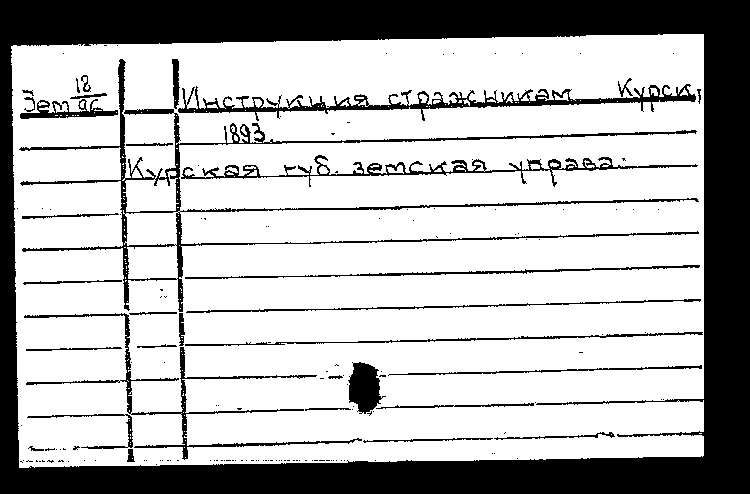 Зем 18/96 Инструкция стражникам Курск,
1893.
Курская губ. земская управа.